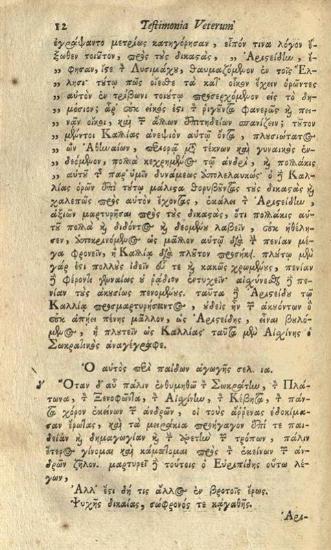 12 Testimonia Veterum
ἐγράψαντο μετρίως κατηγόρησαν, εἶπόν τινα λόγον ἔ-
ξωθεν τοιοῦτον, πρὸς τοὺς δικαστὰς, „ Ἀριστείδην, ἔ-
„ φησαν, ἴστε τὸν Λυσιμάχου, θαυμαζόμενον ἐν τοῖς Ἕλ-
„ λησι· τούτῳ πῶς οἴεσθε τὰ κατ' οἶκον ἔχειν ὁρῶντες
„ αὐτὸν ἐν τρίβωνι τοιούτῳ προερχόμενον εἰς τὸ δη-
„ μόσιον; ἆρ' οὐκ εἰκός ἐστι τὸν ῥιγοῦντα φανερῶς καὶ πει-
„ νᾶν οἴκοι, καὶ τῶν ἄλλων ἐπιτηδείων σπανίζειν; τοῦτον
„ μέντοι Καλλίας ἀνεψιὸν αὑτῷ ὄντα, πλουσιώτατος
„ ὢν Ἀθηναίων, περιορᾷ μετὰ τέκνων καὶ γυναικὸς ἐν-
„ δεόμενον, πολλὰ κεχρημένος τῷ ἀνδρὶ, καὶ πολλάκις
„ αὐτοῦ τῆς παρ' ὑμῖν δυνάμεως ἀπολελαυκώς. ὁ δὲ Καλ-
λίας ὁρῶν ἐπὶ τούτῳ μάλιστα θορυβοῦντας τοὺς δικαστὰς καὶ
χαλεπῶς πρὸς αὐτὸν ἔχοντας, ἐκάλει τὸν Ἀριστείδην,
ἀξιῶν μαρτυρῆσαι πρὸς τοὺς δικαστὰς, ὅτι πολλάκις αὐ-
τοῦ πολλὰ καὶ διδόντος καὶ δεομένου λαβεῖν, οὐκ ἠθέλη-
σεν, ἀποκρινόμενος ὡς μᾶλλον αὐτῷ διὰ τὴν πενίαν μέ-
γα φρονεῖν, ἢ Καλλίᾳ διὰ πλοῦτον προσήκει. πλούτῳ μὲν
γάρ ἐστι πολλοὺς ἰδεῖν εὖ τε καὶ κακῶς χρωμένους, πενίαν
δὲ φέροντι γενναίως οὐ ῥᾴδιον ἐντυχεῖν. αἰσχύνεσθαι δὲ πε-
νίαν τοὺς ἀκουσίως πενομένους. ταῦτα δὲ Ἀριστείδου τῷ
Καλλίᾳ προσμαρτυρήσαντος, οὐδεὶς ἦν τῶν ἀκουόντων ὃς
οὐκ ἀπῄει πένης μᾶλλον, ὡς Ἀριστείδης, εἶναι βουλό-
μενος, ἢ πλουτεῖν ὡς Καλλίας· ταῦτα μὲν Αἰσχίνης ὁ
Σωκρατικὸς ἀναγέγραφε.
Ὁ αὐτὸς περὶ παίδων ἀγωγῆς σελ. ια.
Ὅταν δ' αὖ πάλιν ἐνθυμηθῶ τὸν Σωκράτην, τὸν Πλά-
τωνα, τὸν Ξενοφῶντα, τὸν Αἰσχίνην, τὸν Κέβητα, τὸν πάν-
τα χορὸν ἐκείνων τῶν ἀνδρῶν, οἳ τοὺς ἄῤῥενας ἐδοκίμα-
σαν ἔρωτας, καὶ τὰ μειράκια προήγαγον ἐπί τε παι-
δείαν καὶ δημαγωγίαν καὶ τὴν ἀρετὴν τῶν τρόπων, πάλιν
ἕτερος γίνομαι καὶ κάμπτομαι πρὸς τὸν ἐκείνων τῶν ἀν-
δρῶν ζῆλον. μαρτυρεῖ δὲ τούτοις ὁ Εὐριπίδης οὕτω λέ-
γων,
Ἀλλ' ἔστι δή τις ἄλλος ἐν βροτοῖς ἔρως.
Ψυχῆς δικαίας, σώφρονός τε κἀγαθῆς.
Ἀρι-